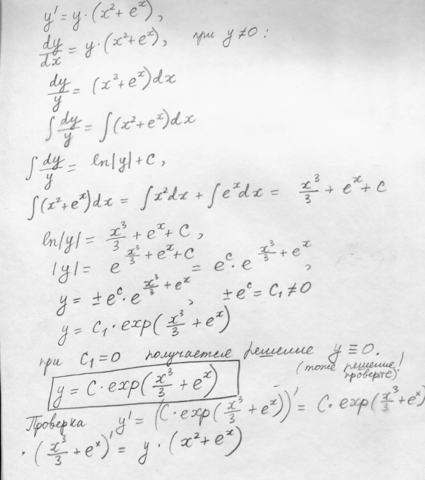 y' = y·(x²+eˣ),
dy/dx = y·(x²+eˣ), при y≠0:
dy/y = (x²+eˣ)dx
∫dy/y = ∫(x²+eˣ)dx
∫dy/y = ln|y|+C,
∫(x²+eˣ)dx = ∫x²dx + ∫eˣdx = x³/3 + eˣ + C
ln|y| = x³/3 + eˣ + C,
|y| = e^(x³/3 + eˣ + C) = e^C · e^(x³/3 + eˣ),
y = ±e^C · e^(x³/3 + eˣ), ±e^C = C₁ ≠ 0
y = C₁·exp(x³/3 + eˣ)
при C₁=0 получается решение y ≡ 0.
(тоже решение! проверьте)
y = C·exp(x³/3 + eˣ)
Проверка y' = (C·exp(x³/3 + eˣ))' = C·exp(x³/3 + eˣ)
·(x³/3 + eˣ)' = y·(x²+eˣ)